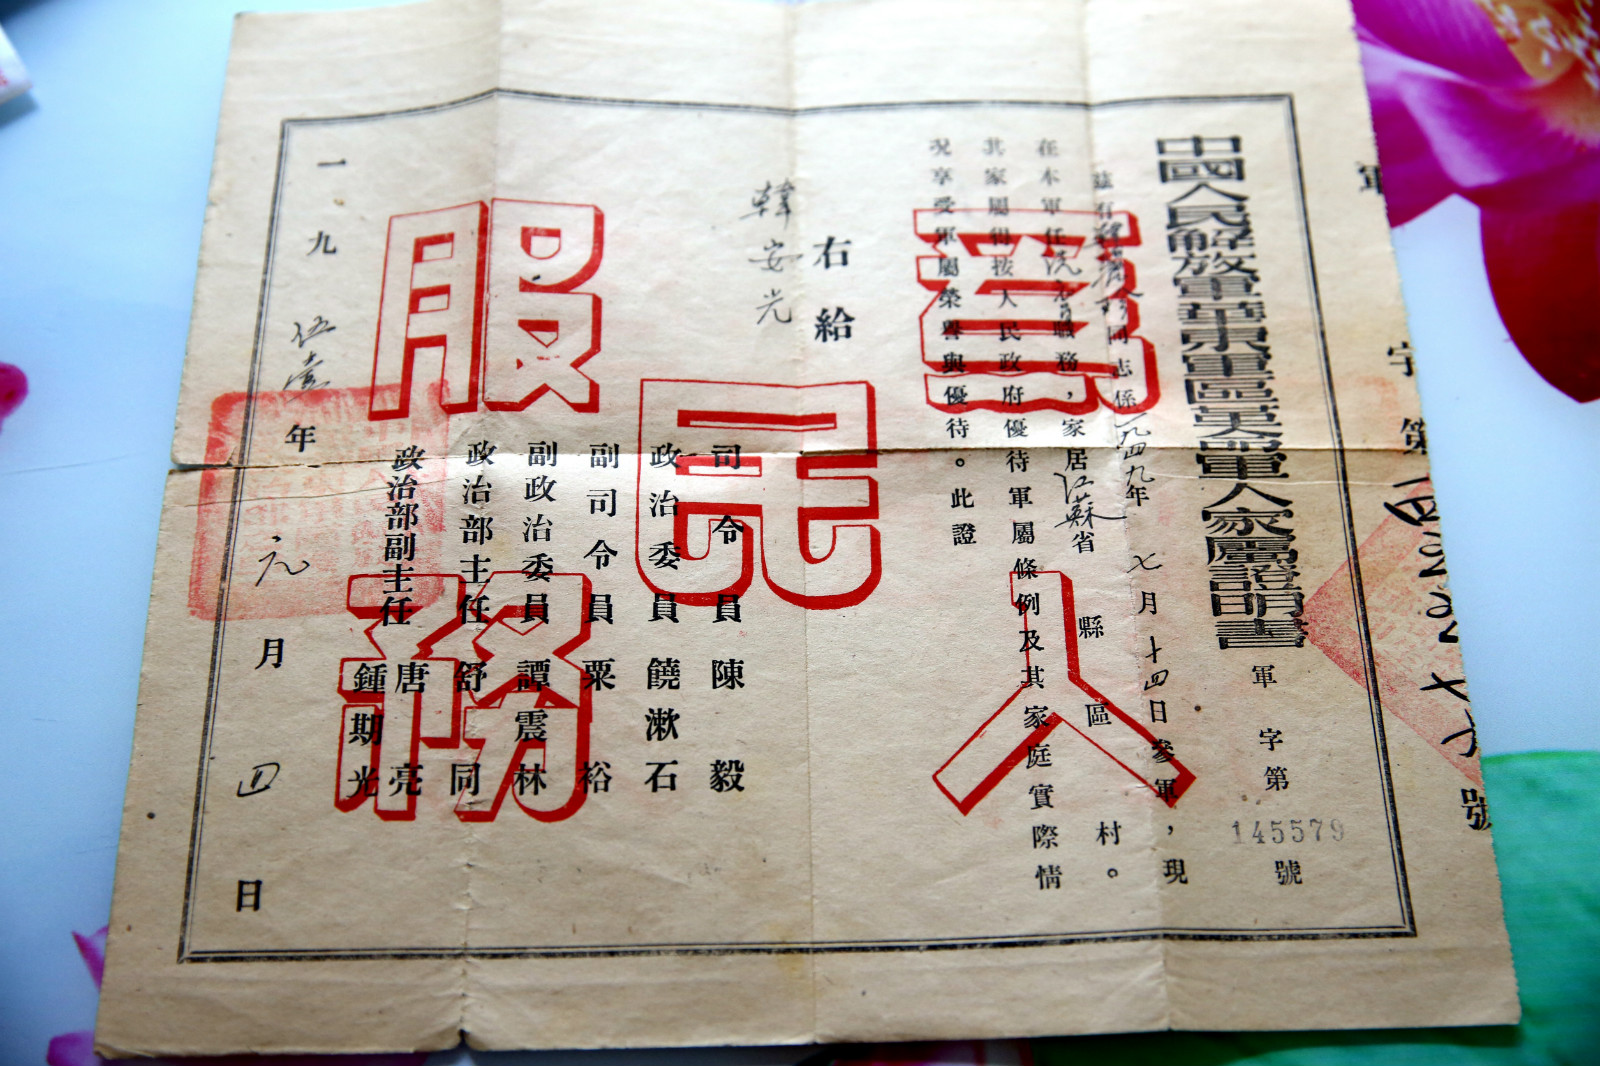 軍 字 第 號
中國人民解放軍華東軍區革命軍人家屬證明書
軍 字 第 145579 號
茲有韓 同志係一九四九年七月十四日參軍，現
在本軍任 職務，家居江蘇省 縣 區 村。
其家屬得按人民政府優待軍屬條例及其家庭實際情
況享受軍屬榮譽與優待。此證
右給
韓安光
司令員 陳毅
政治委員 饒漱石
副司令員 粟裕
副政治委員 譚震林
政治部主任 舒同
政治部副主任 唐亮
鍾期光
一九伍壹年元月四日
為人民服務